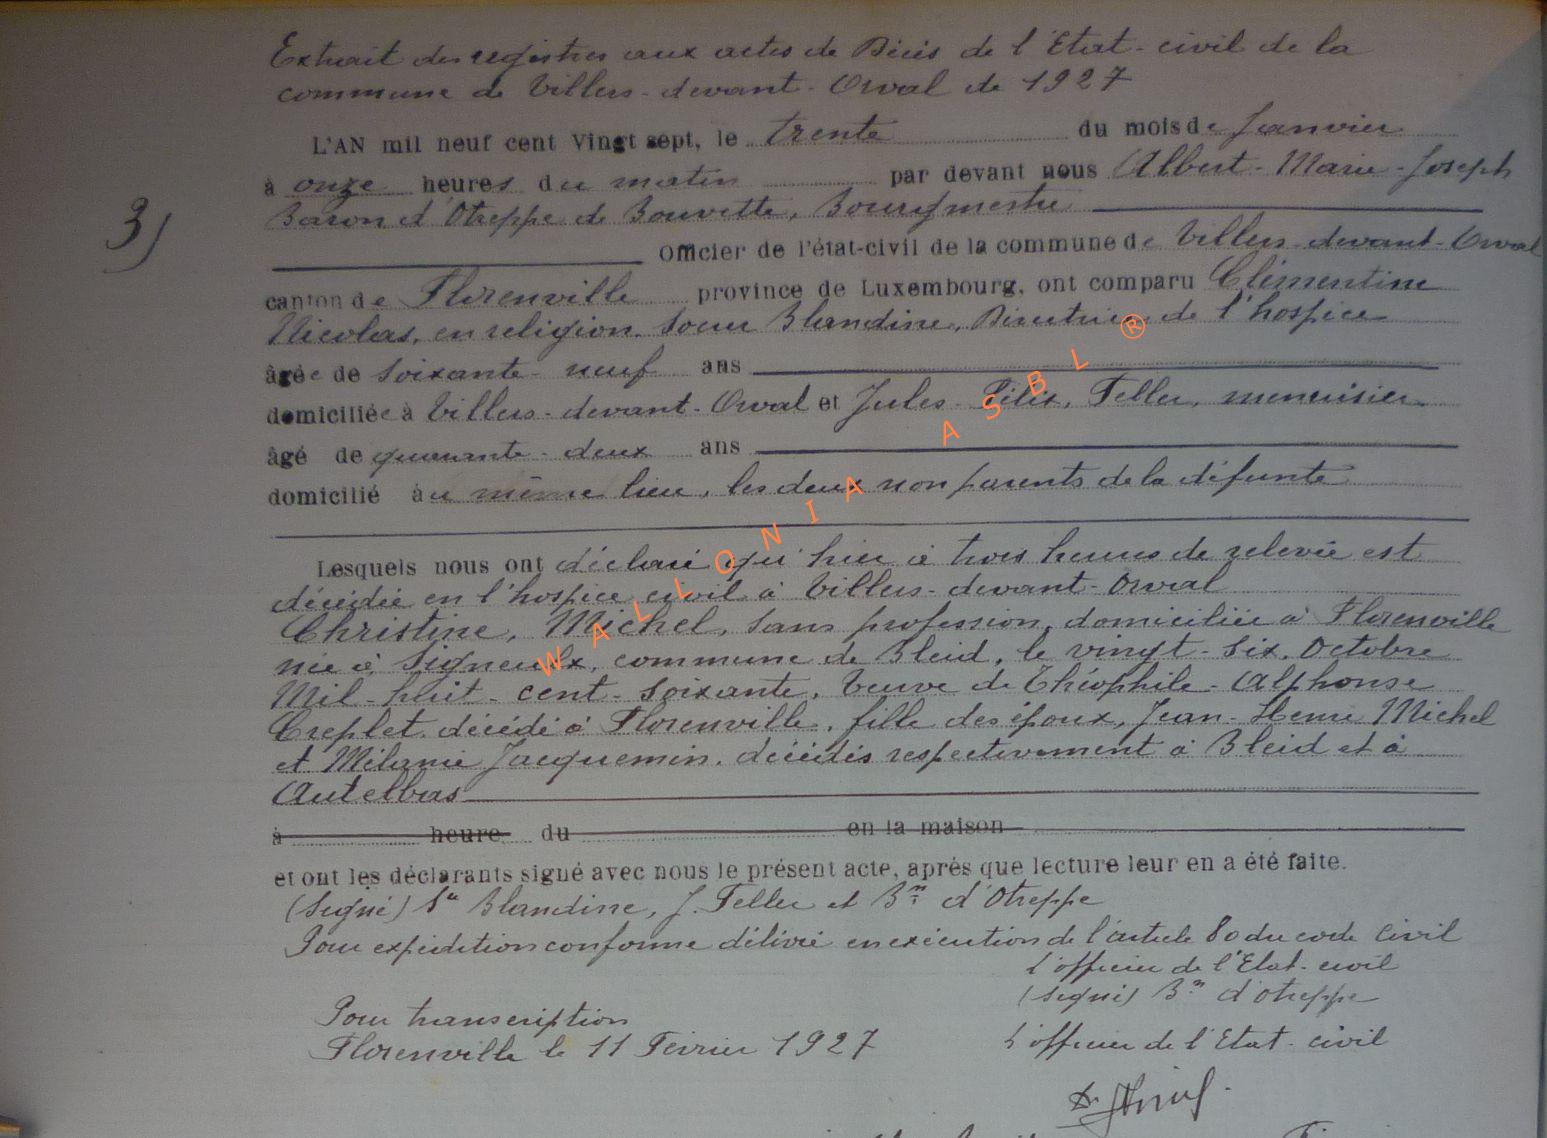 Extrait des registres aux actes de Décès de l'Etat-civil de la
commune de Villers-devant-Orval de 1927
L'AN mil neuf cent Vingt sept, le trente du mois de Janvier
à onze heures du matin par devant nous Albert-Marie-Joseph
3)
Baron d'Otreppe de Bouvette, Bourgmestre
Officier de l'état-civil de la commune de Villers-devant-Orval
canton de Florenville province de Luxembourg, ont comparu Clémentine
Nicolas, en religion Soeur Blandine, Directrice de l'hospice
âgée de soixante-neuf ans
domiciliée à Villers-devant-Orval et Jules-Félix, Feller, menuisier
âgé de quarante-deux ans
domicilié au même lieu, les deux non parents de la défunte
Lesquels nous ont déclaré qu'hier à trois heures de relevée est
décédée en l'hospice civil à Villers-devant-Orval
Christine, Michel, sans profession, domiciliée à Florenville
née à Signeulx, commune de Bleid, le vingt-six, Octobre
Mil-huit-cent-soixante, Veuve de Théophile-Alphonse
Creplet, décédé à Florenville, fille des époux, Jean-Henri Michel
et Mélanie Jacquemin, décédés respectivement à Bleid et à
Autelbas
à heure du en la maison
et ont les déclarants signé avec nous le présent acte, après que lecture leur en a été faite.
(Signé) Sr Blandine, J. Feller et Bn d'Otreppe
Pour expédition conforme délivré en exécution de l'article 80 du code civil
L'officier de l'Etat-civil
(signé) Bn d'Otreppe
Pour transcription
Florenville le 11 Février 1927 L'officier de l'Etat-civil
WALLONIA ASBL ®